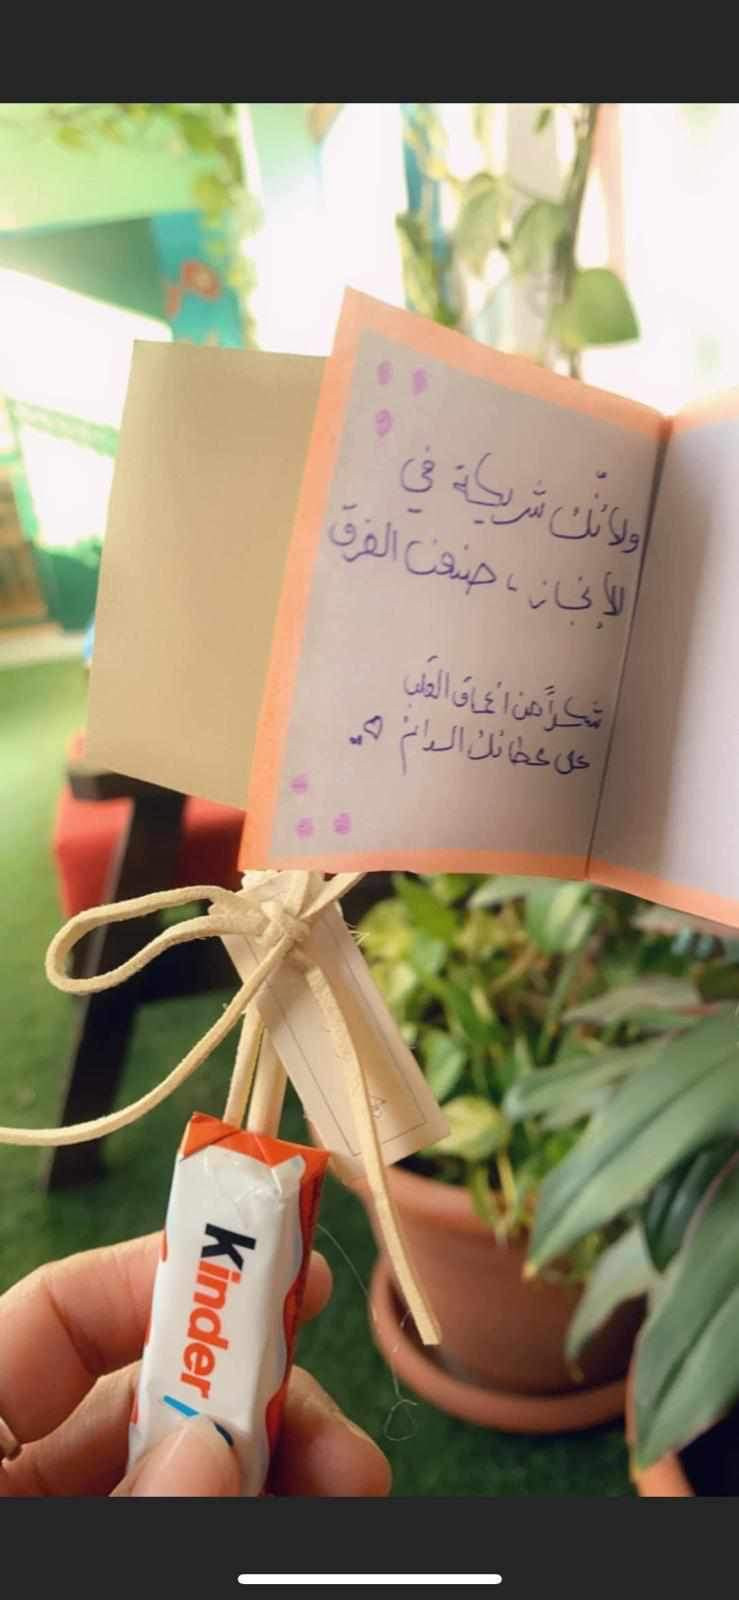 ولأنّك شريكة في
الإنجاز، صنعتِ الفرق
شكراً من أعماق القلب
على عطائك الدائم
Kinder